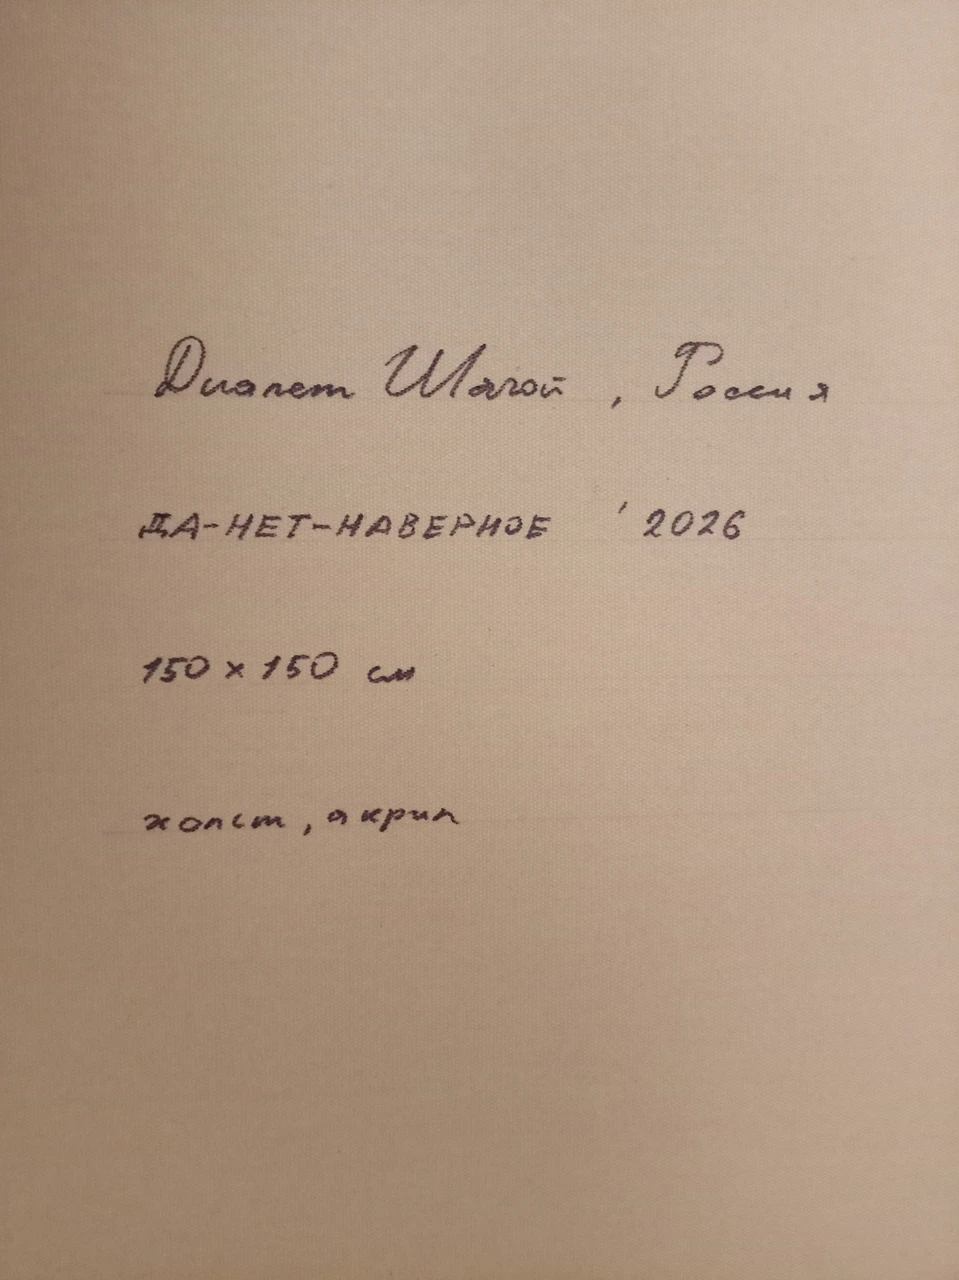 Диалет Шагой, Россия
ДА-НЕТ-НАВЕРНОЕ '2026
150 x 150 см
холст, акрил